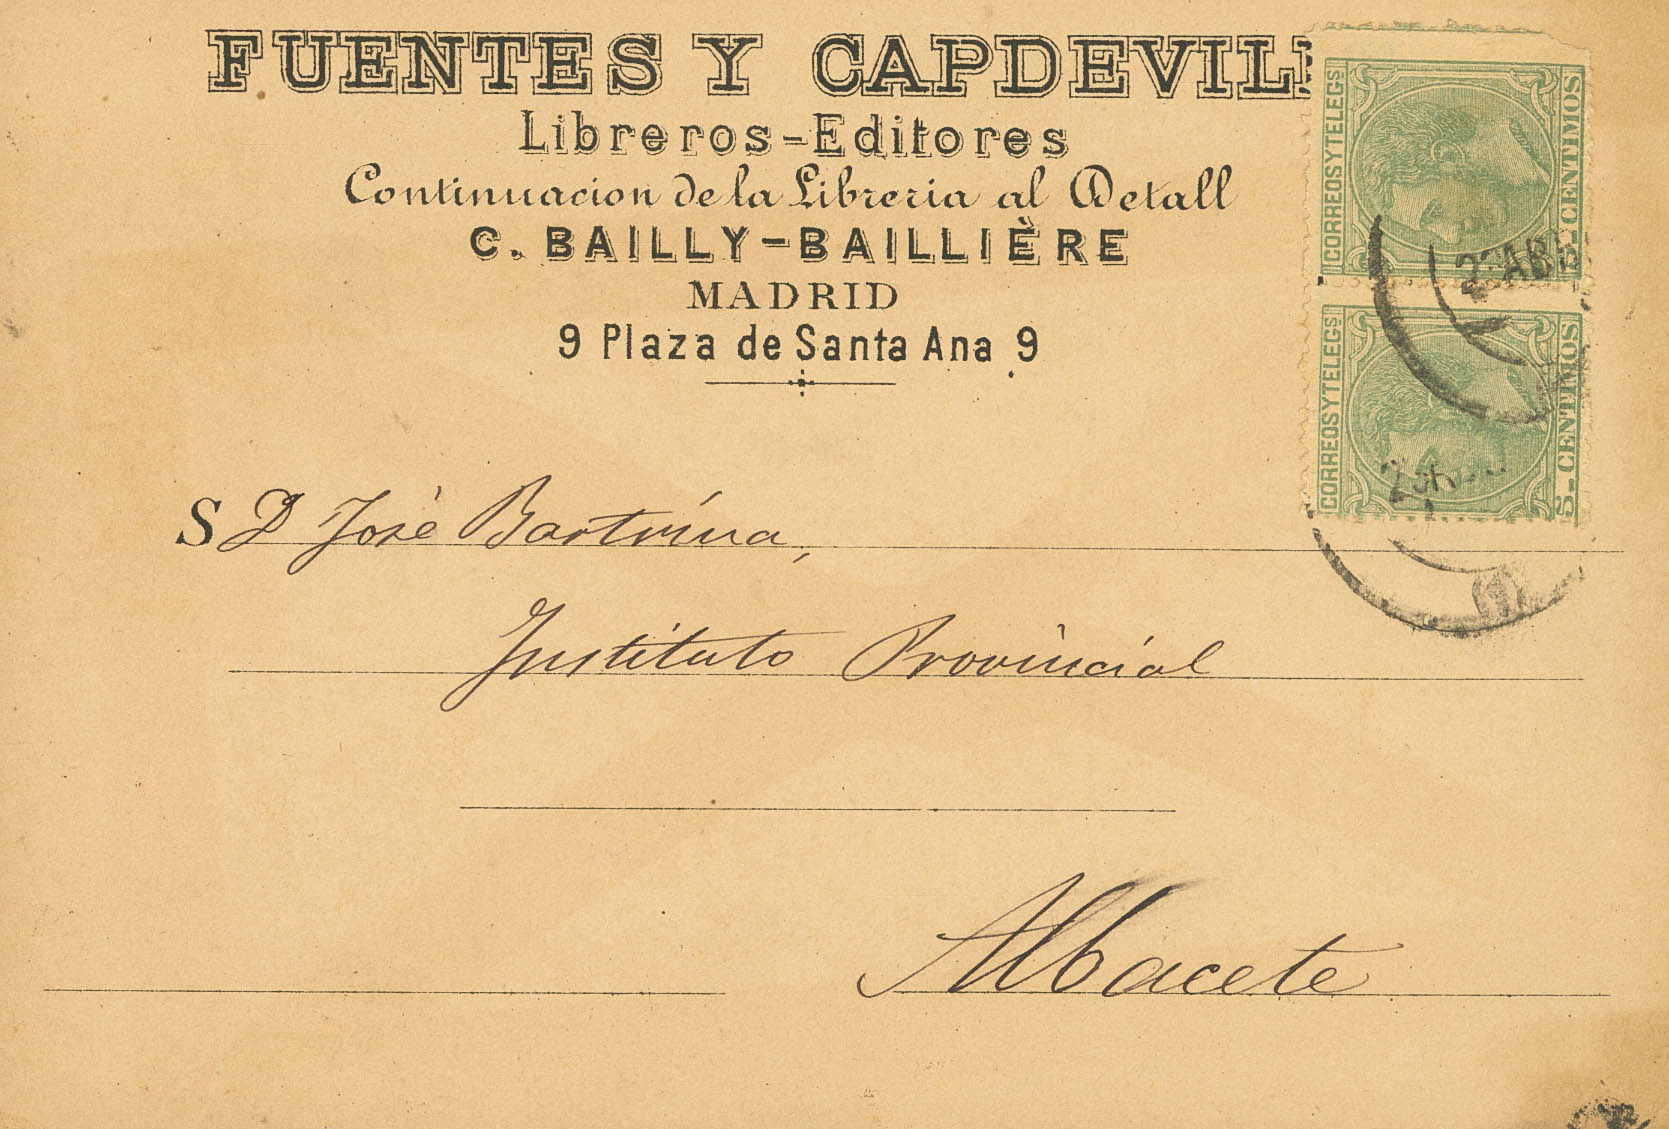 FUENTES Y CAPDEVIL
Libreros-Editores
Continuacion de la Libreria al Detall
C. BAILLY-BAILLIÈRE
MADRID
9 Plaza de Santa Ana 9
CORREOS Y TELEGS
5-CENTIMOS
CORREOS Y TELEGS
5-CENTIMOS
S D José Bartrina,
Instituto Provincial
Albacete